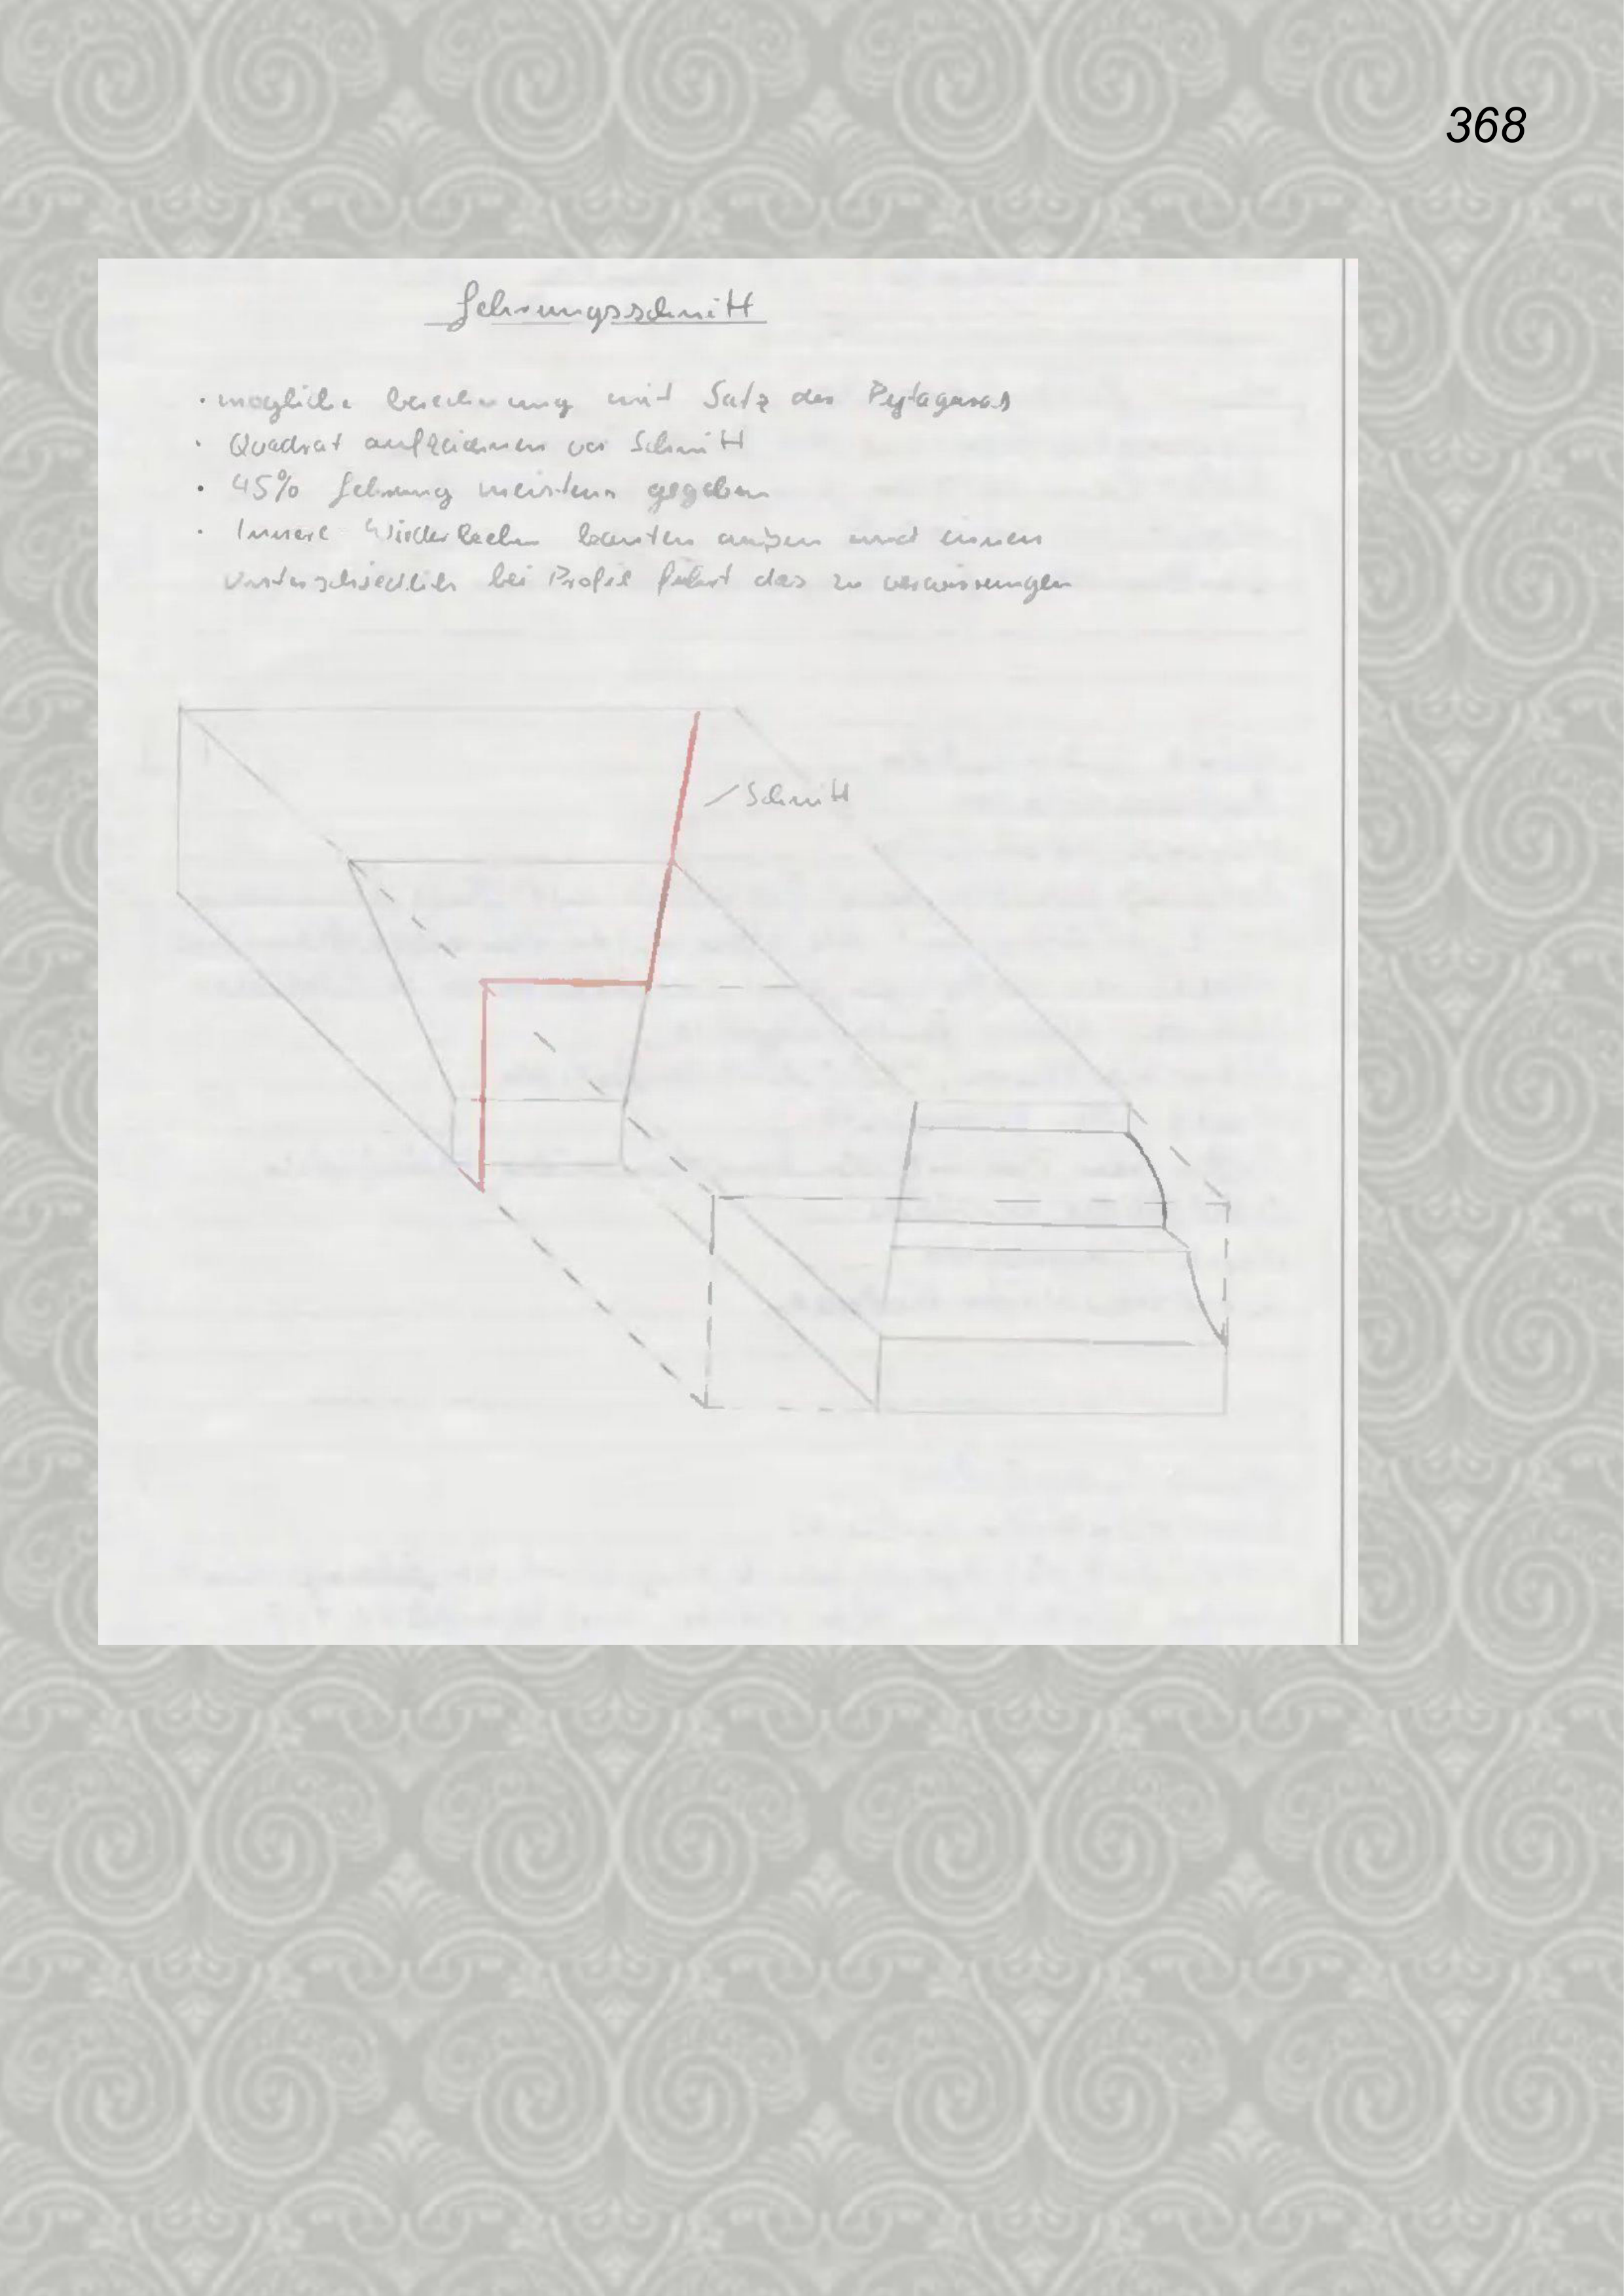 368
Gehrungsschnitt
· mögliche berechnung mit Satz des Pytagoras
· Quadrat aufzeichnen vor Schnitt
· 45% Gehrung meistens gegeben
· Innere Wiederkehr kanten außen und innen
unterschiedlich bei Profil führt das zu verwirrungen
Schnitt